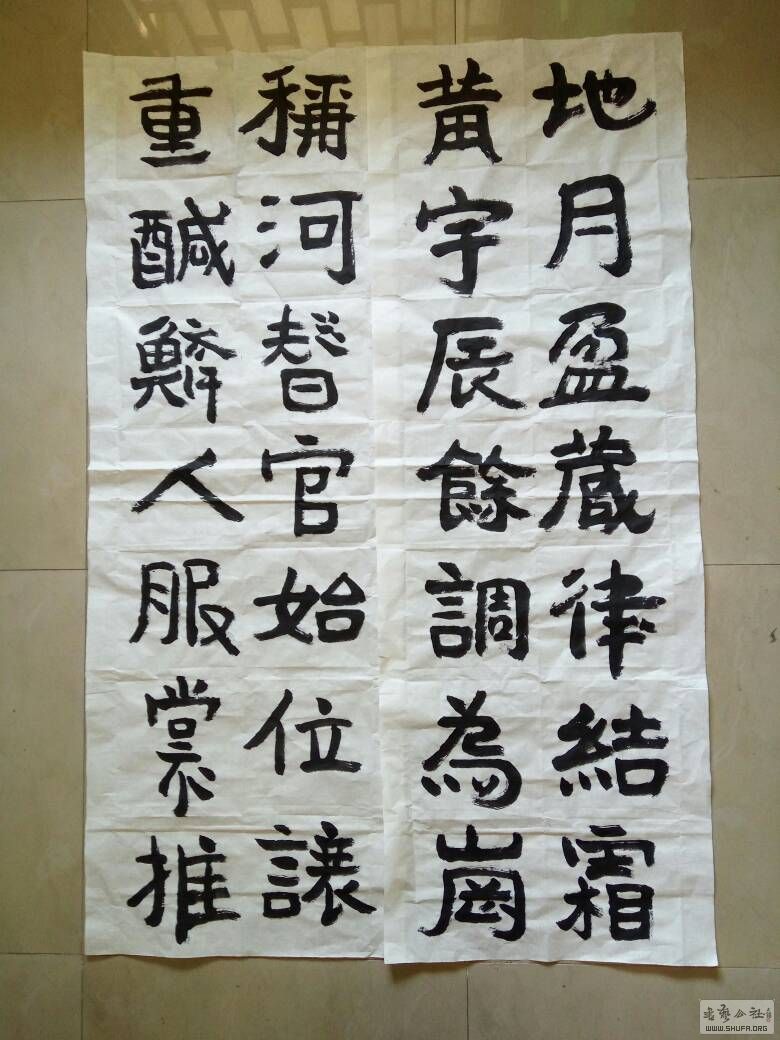 地月盈蔵律結霜
黄宇辰餘調為崗
稱河官始位讓
重醎鱗人服裳推
書藝公社
WWW.SHUFA.ORG